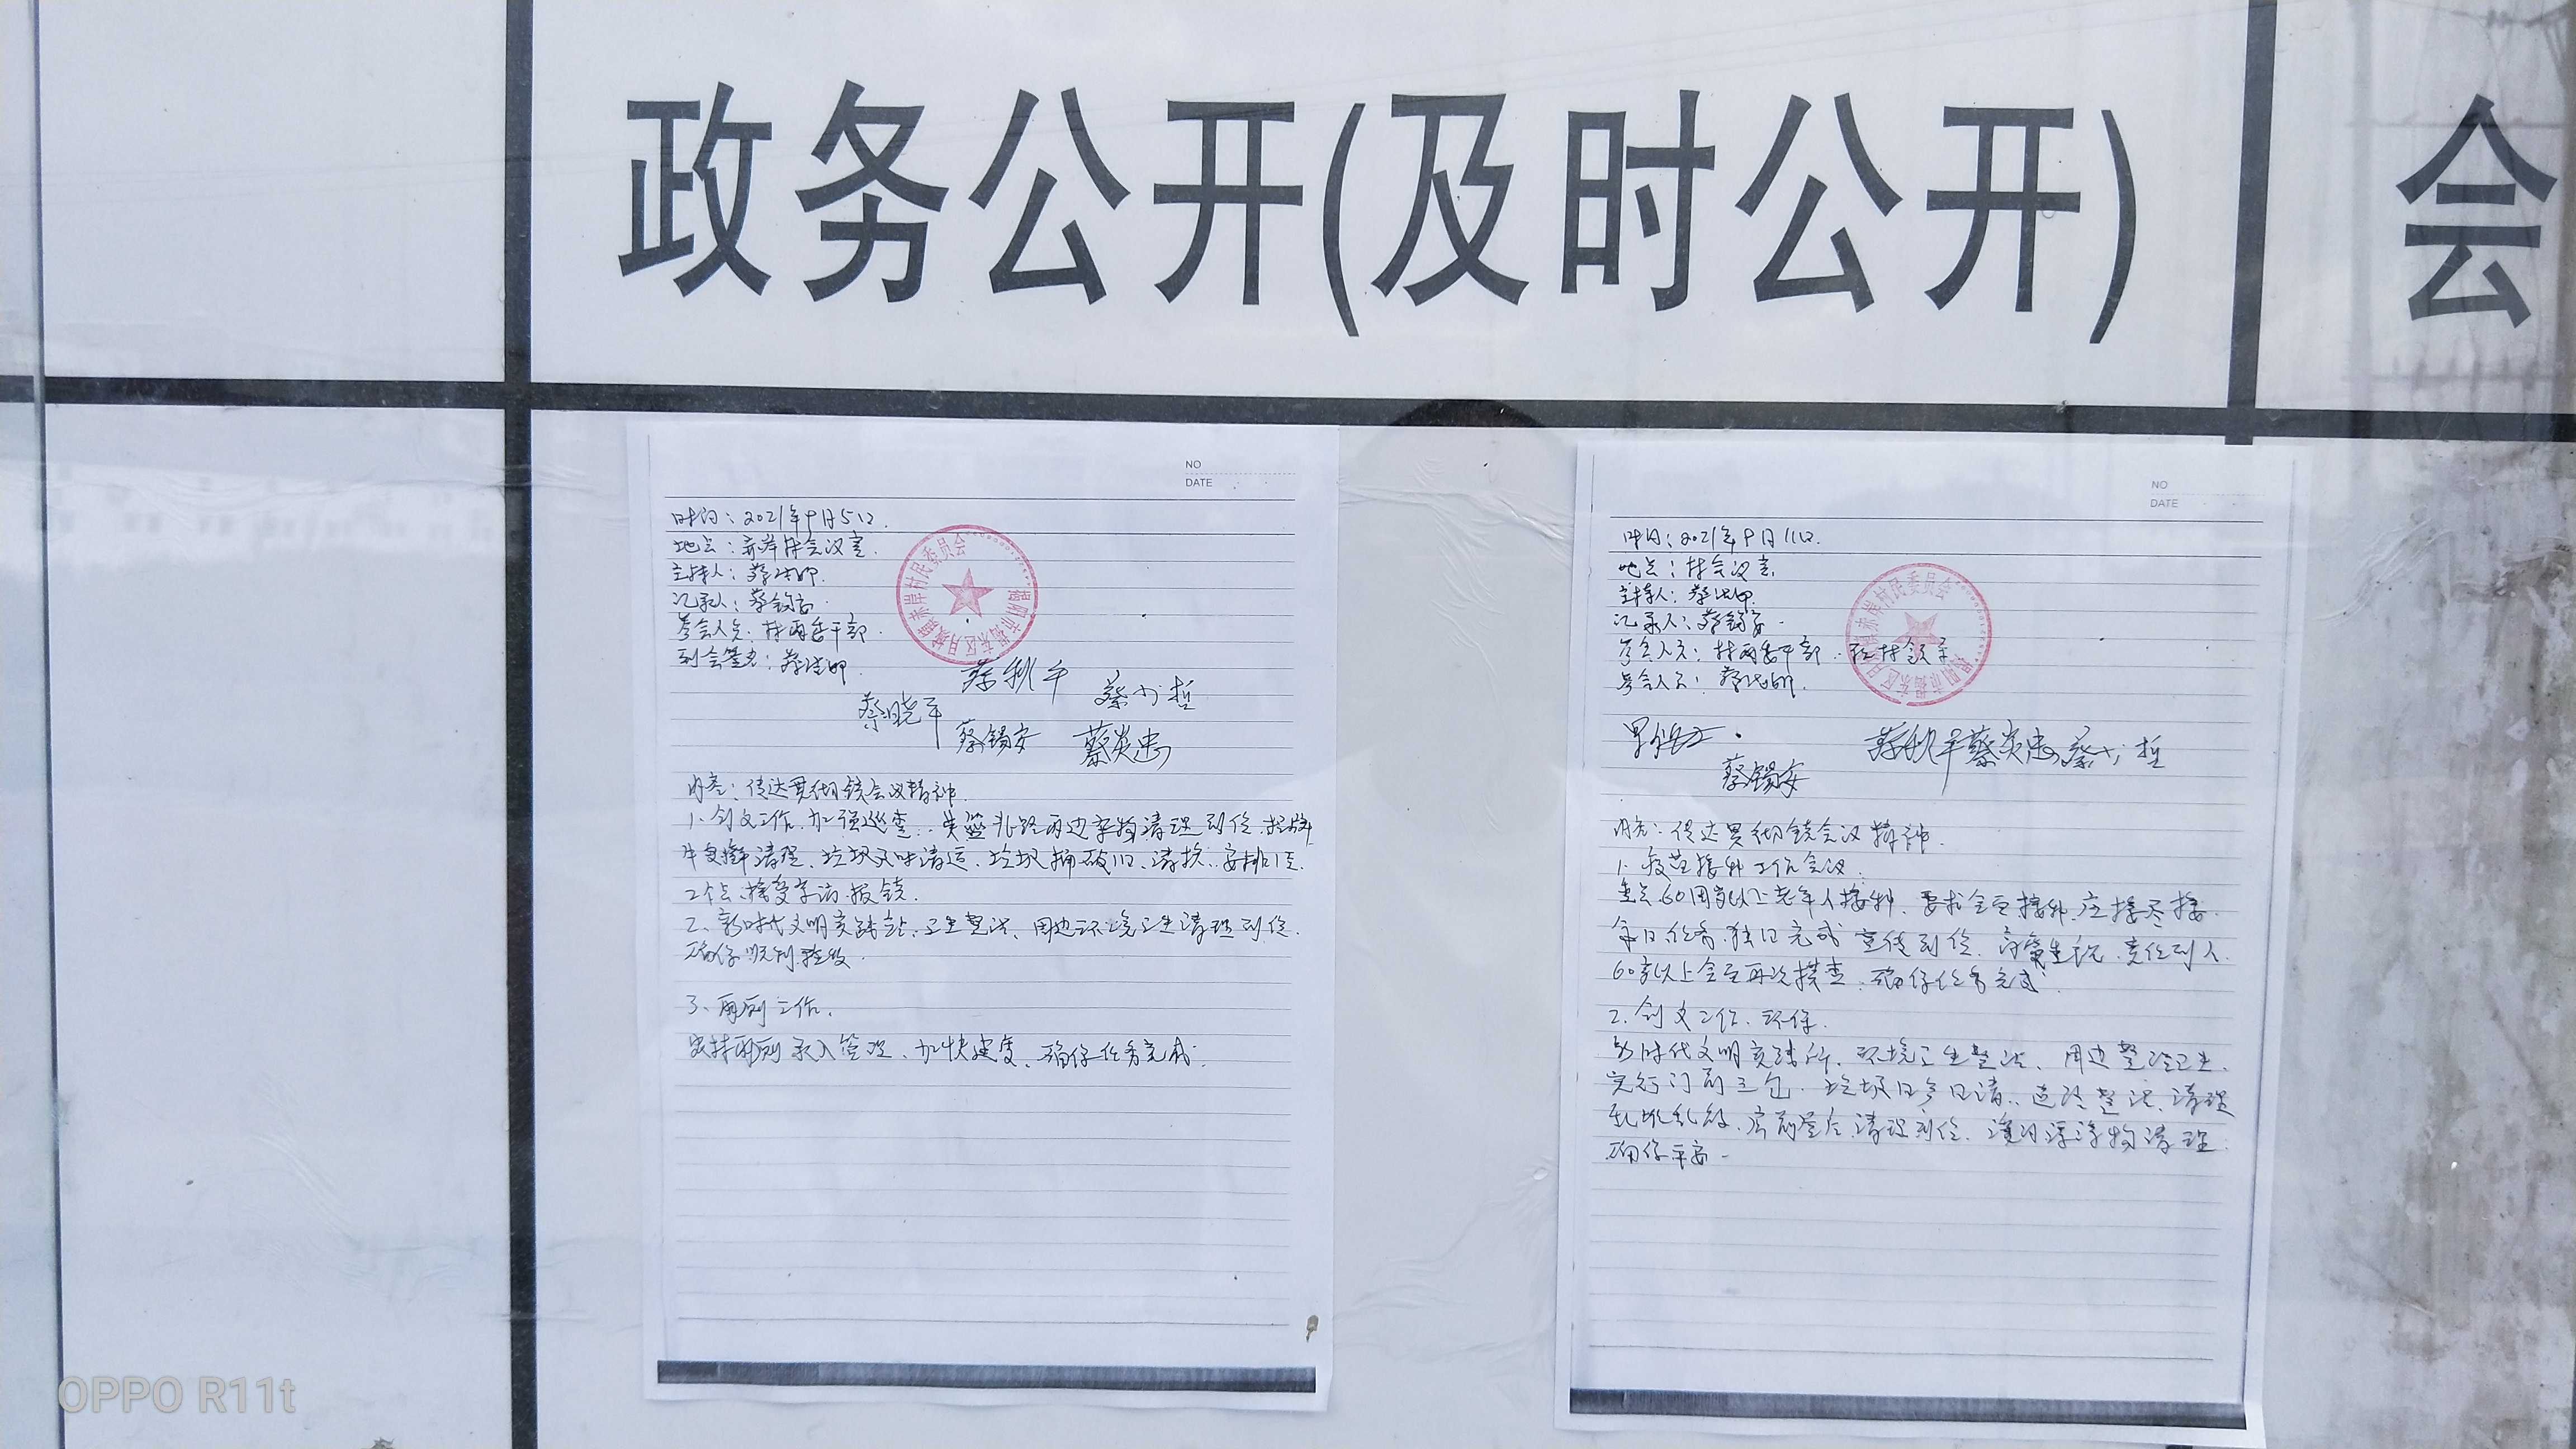 政务公开(及时公开)
会
NO
DATE
时间：2021年9月5日.
地点：赤岸村会议室.
主持人：蔡
记录人：蔡锡安
参会人员：村两委干部.
到会签名：蔡
蔡秋平 蔡少哲
蔡晓平 蔡锡安 蔡炎忠
揭阳市揭东区月城镇赤岸村民委员会
内容：传达贯彻镇会议精神.
1、创文工作.加强巡查.. 两边杂物清理到位.
清理、垃圾及时清运、垃圾桶破旧、请换..安排
2个点.接受 报镇.
2、新时代文明实践站、卫生整治、周边环境卫生清理到位.
确保顺利验收.
3、两 工作.
录入管理、加快速度、确保任务完成.
NO
DATE
时间：2021年9月11日.
地点：村会议室.
主持人：蔡
记录人：蔡锡安.
参会人员：村两委干部.驻村领导
参会人员：蔡
揭阳市揭东区月城镇赤岸村民委员会
蔡秋平 蔡炎忠 蔡少哲
蔡锡安
内容：传达贯彻镇会议精神.
1、疫苗接种工作会议.
重点60周岁以上老年人接种、要求全面接种.应接尽接.
每日任务.独日完成 宣传到位. 责任到人.
60岁以上全面再次摸查.确保任务完成.
2、创文工作、环保.
新时代文明实践所、环境卫生整治、周边整治卫生.
实行门前三包.垃圾日产日清..道路整治、清理
乱堆乱放.房前屋后.清理到位. 漂浮物清理.
确保平安.
OPPO R11t